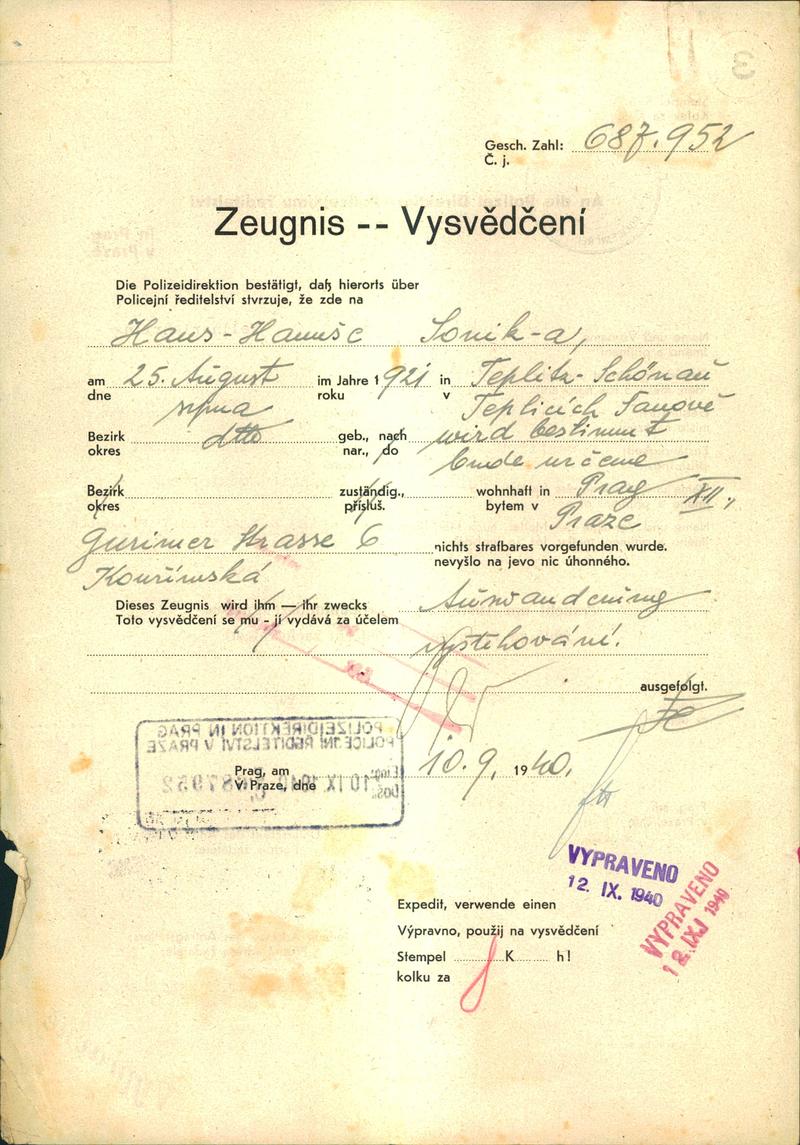 Gesch. Zahl: 687.952
Č. j.
Zeugnis -- Vysvědčení
Die Polizeidirektion bestätigt, daß hierorts über
Policejní ředitelství stvrzuje, že zde na
Hans-Hanuše Sonik-a,
am 25. August im Jahre 1921 in Teplitz-Schönau
dne srpna roku v Teplicích Šanově
Bezirk dtto geb., nach wird bestimmt
okres nar., do bude určeme
Bezirk zuständig., wohnhaft in Prag XII.,
okres přísluš. bytem v Praze
Gurimer Strasse 6 nichts strafbares vorgefunden wurde.
Kouřimská nevyšlo na jevo nic úhonného.
Dieses Zeugnis wird ihm — ihr zwecks Auswanderung
Toto vysvědčení se mu - jí vydává za účelem vystěhování.
ausgefolgt.
POLIZEIDIREKTION IN PRAG
POLICEJNÍ ŘEDITELSTVÍ V PRAZE
10 IX 1940 687952
Prag, am 10.9. 1940.
V Praze, dne
VYPRAVENO
12. IX. 1940
VYPRAVENO
12. IX. 1940
Expedit, verwende einen
Výpravno, použij na vysvědčení
Stempel K h!
kolku za